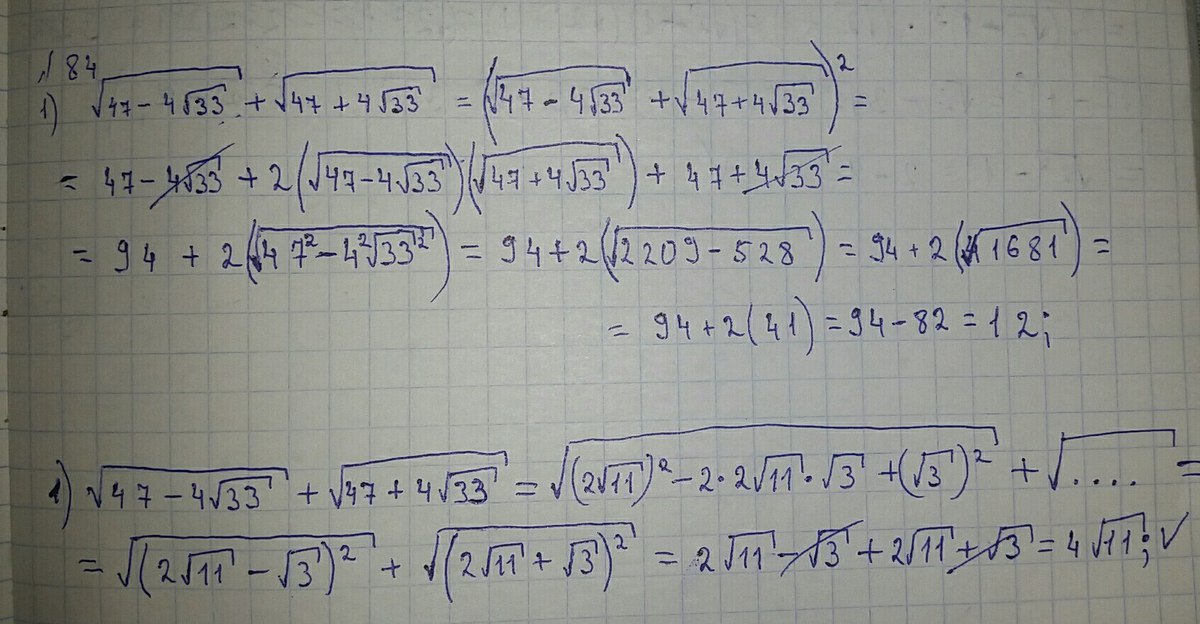 № 84
1) √(47 − 4√33) + √(47 + 4√33) = (√(47 − 4√33) + √(47 + 4√33))² =
= 47 − 4√33 + 2(√(47 − 4√33))(√(47 + 4√33)) + 47 + 4√33 =
= 94 + 2(√(47² − 4²√33²)) = 94 + 2(√(2209 − 528)) = 94 + 2(√1681) =
= 94 + 2(41) = 94 − 82 = 12;
1) √(47 − 4√33) + √(47 + 4√33) = √((2√11)² − 2·2√11·√3 + (√3)²) + √.... =
= √((2√11 − √3)²) + √((2√11 + √3)²) = 2√11 − √3 + 2√11 + √3 = 4√11; ✓